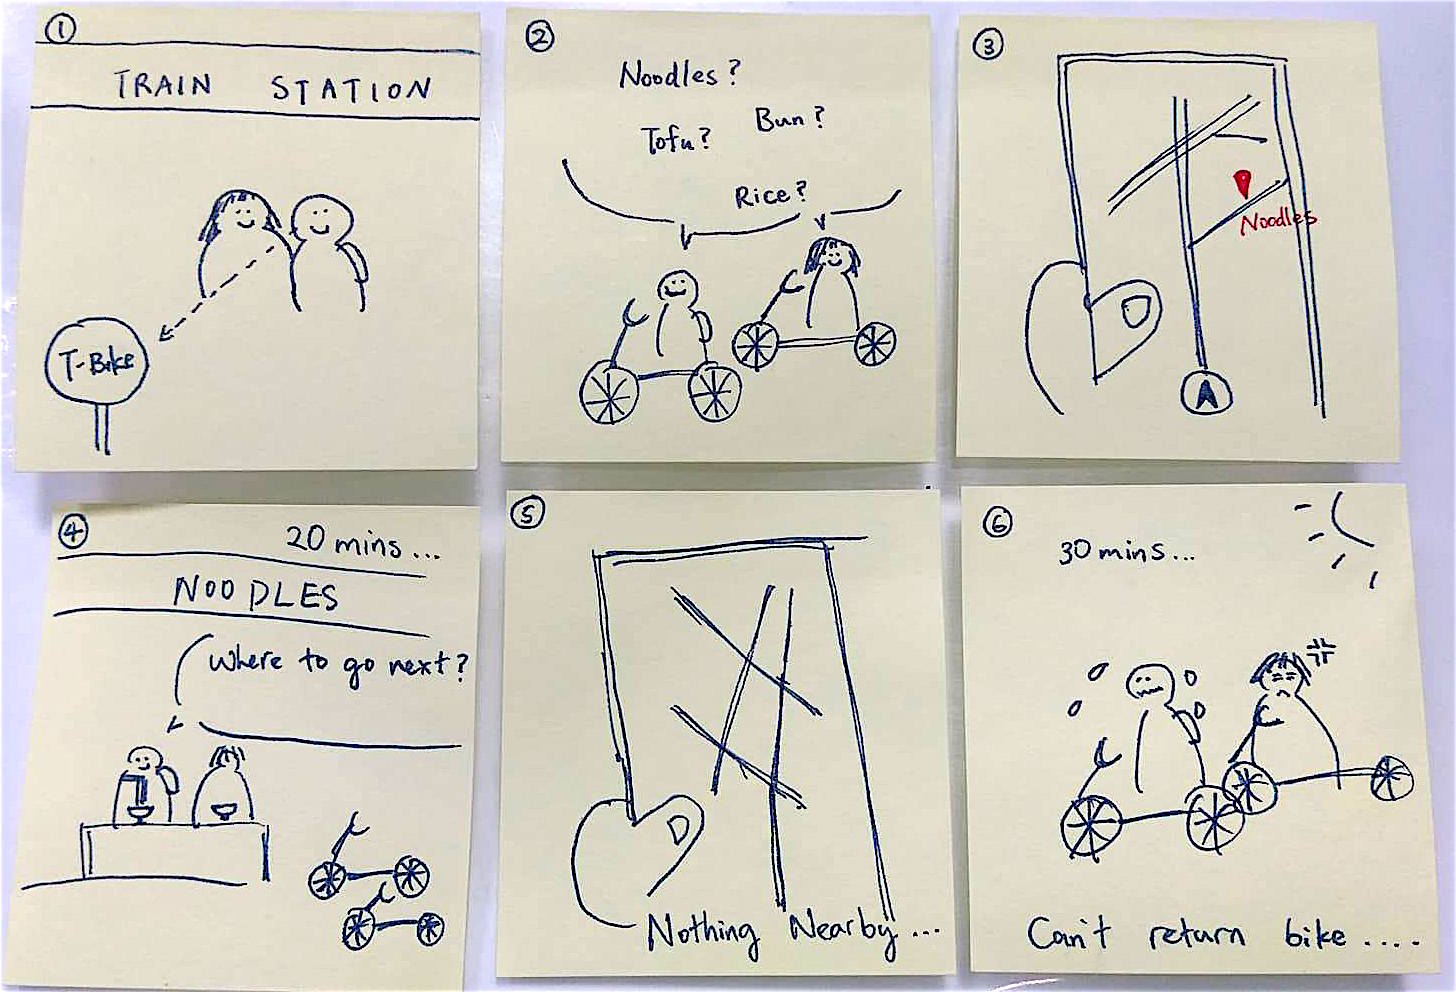 1
TRAIN STATION
T-Bike
2
Noodles?
Bun?
Tofu?
Rice?
3
Noodles
4
20 mins...
NOODLES
Where to go next?
5
Nothing Nearby...
6
30 mins...
Can't return bike ....